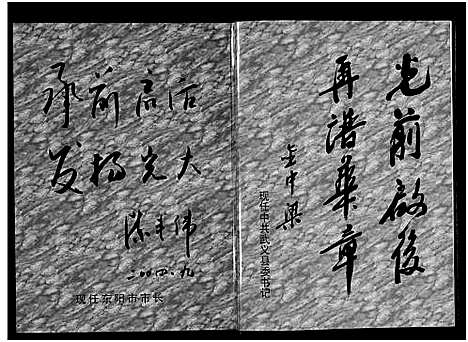 光前啟後
再谱華章
金中梁
现任中共武义县委书记
承前启后
发扬光大
陈丰伟
二〇〇四.九
现任东阳市市长